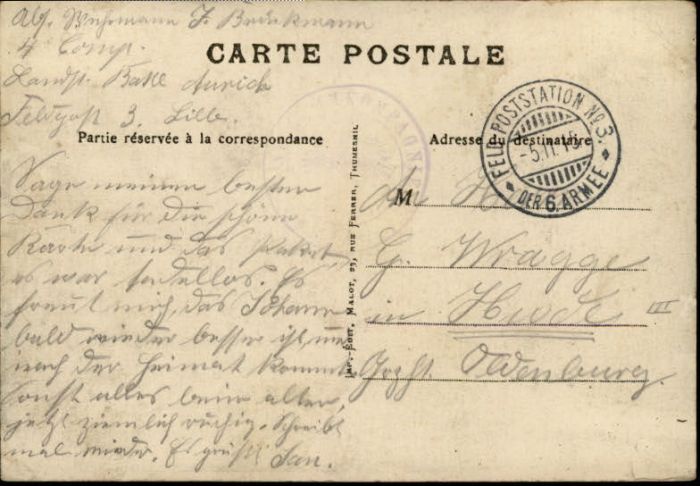 Abs. Wehrmann J. Brinkmann
4 Comp.
Landst. Batl Aurich
Feldpost 3. Lille.
CARTE POSTALE
Partie réservée à la correspondance
Adresse du destinataire
FELD-POSTSTATION No 3.
-5.11.15
DER 6. ARMEE
Sage meinen besten
Dank für die schöne
Karte und das Paket,
es war tadellos. Es
freut mich, das Johann
bald wieder besser ist, und
nach der Heimat kommt.
Sonst alles beim alten,
jetzt ziemlich ruhig. Schreibt
mal wieder. Es grüßt Jan.
IMP.-EDIT. MALOT, 29, RUE FERRER, THUMESNIL
M
An
G. Wragge
in
III
Grzht. Oldenburg.